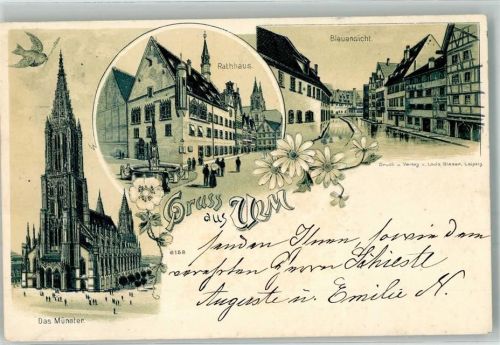 Rathhaus.
Blauansicht.
Druck u. Verlag v. Louis Glaser, Leipzig.
Gruss
aus Ulm
6158
senden Ihnen, sowie dem
verehrten Herrn Schieste
Auguste u. Emilie N.
Das Münster.